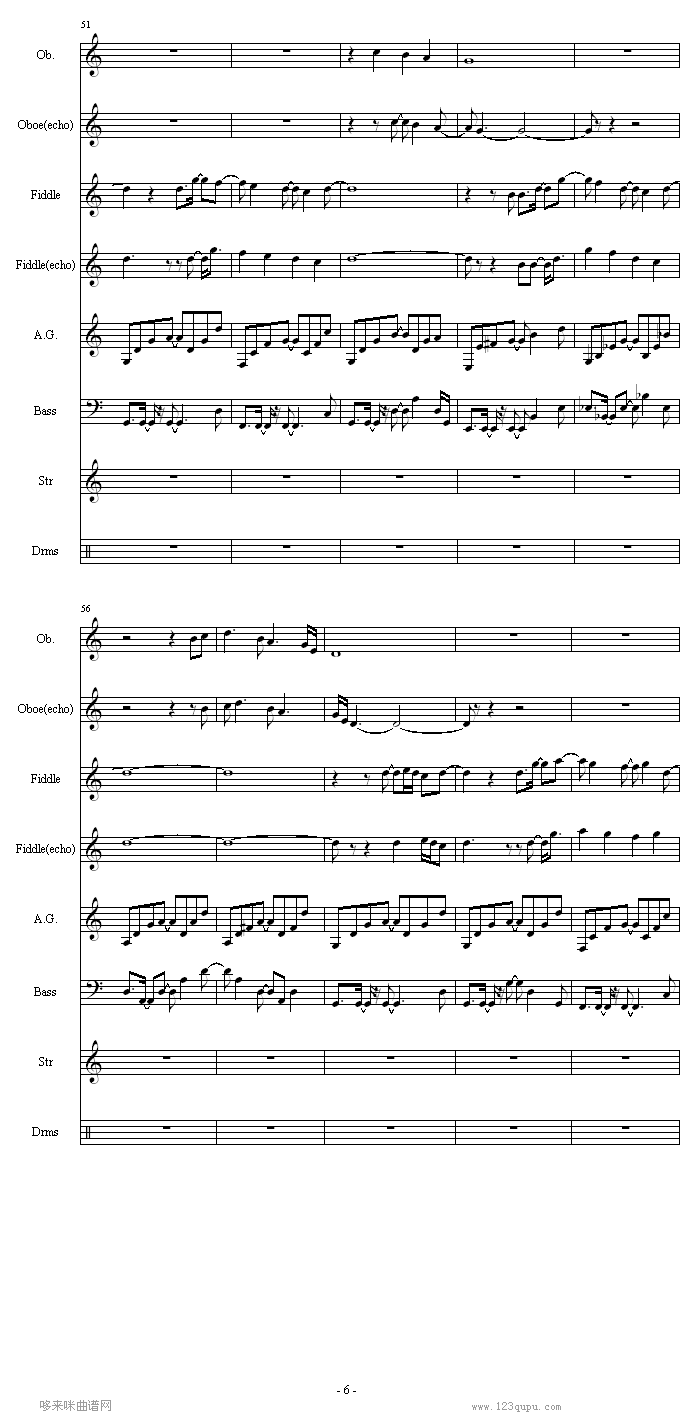 51
Ob.
Oboe(echo)
Fiddle
Fiddle(echo)
A.G.
Bass
Str
Drms
56
Ob.
Oboe(echo)
Fiddle
Fiddle(echo)
A.G.
Bass
Str
Drms
- 6 -
哆来咪曲谱网 www.123qupu.com